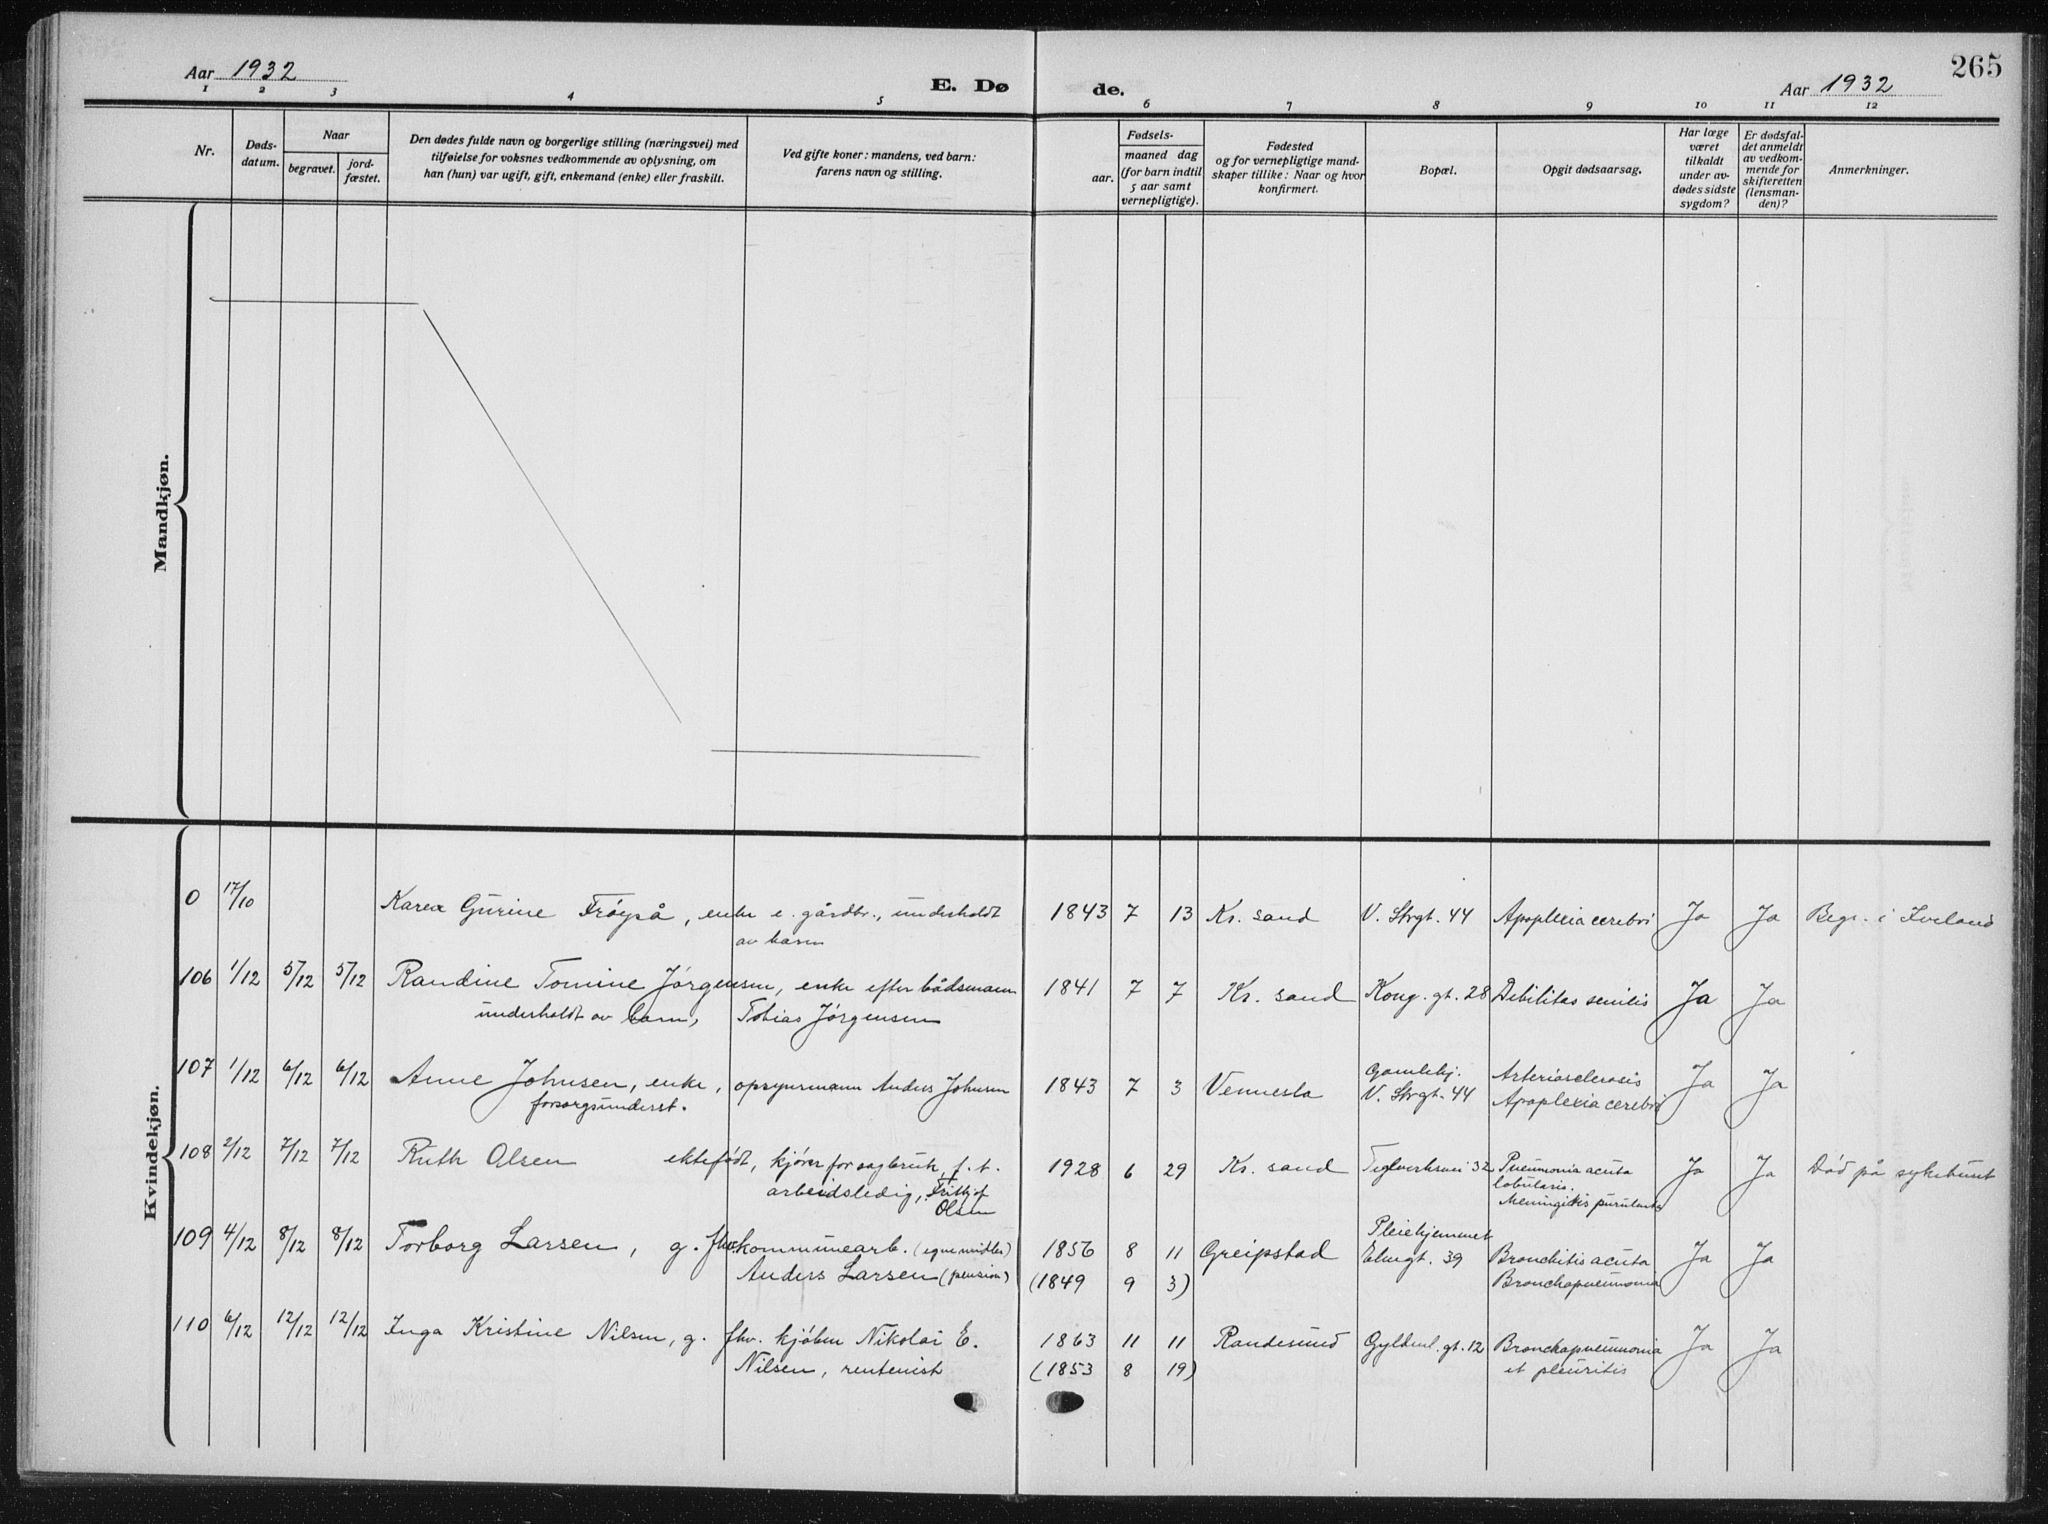 265
Aar 1932
E. Dø
de.
Aar 1932
1 2 3 4 5 6 7 8 9 10 11 12
Nr.
Døds-
datum.
Naar
begravet.
jord-
fæstet.
Den dødes fulde navn og borgerlige stilling (næringsvei) med
tilføielse for voksnes vedkommende av oplysning, om
han (hun) var ugift, gift, enkemand (enke) eller fraskilt.
Ved gifte koner: mandens, ved barn:
farens navn og stilling.
Fødsels-
aar.
maaned dag
(for barn indtil
5 aar samt
vernepligtige).
Fødested
og for vernepligtige mand-
skaper tillike: Naar og hvor
konfirmert.
Bopæl.
Opgit dødsaarsag.
Har læge
været
tilkaldt
under av-
dødes sidste
sygdom?
Er dødsfal-
det anmeldt
av vedkom-
mende for
skifteretten
(lensman-
den)?
Anmerkninger.
Mandkjøn.
Kvindekjøn.
0 17/10 Karen Gurine Frøyså, enke e. gårdbr., underholdt 1843 7 13 Kr. sand V. Strgt. 44 Apoplexia cerebri Ja Ja Begr. i Iveland
av barn
106 1/12 5/12 5/12 Randine Tomine Jørgensen, enke efter bådsmann 1841 7 7 Kr. sand Kong. gt. 28 Debilitas senilis Ja Ja
underholdt av barn, Tobias Jørgensen
107 1/12 6/12 6/12 Anne Johnsen, enke, opsynsmann Anders Johnsen 1843 7 3 Vennesla Gamlehj. Arteriosclerosis Ja Ja
forsorgsunderst. V. Strgt. 44 Apoplexia cerebri
108 2/12 7/12 7/12 Ruth Olsen ektefødt, kjører for sagbruk, f.t. 1928 6 29 Kr. sand Teglverksvei 32 Pneumonia acuta Ja Ja Død på sykehuset
arbeidsledig, Fritjof lobularis.
Olsen Meningitis purulenta
109 4/12 8/12 8/12 Torborg Larsen, g. fhv. kommunearb. (egne midler) 1856 8 11 Greipstad Pleiehjemmet Bronchitis acuta Ja Ja
Anders Larsen (pension) (1849 9 3) Elvegt. 39 Bronchopneumonia
110 6/12 12/12 12/12 Inga Kristine Nilsen, g. fhv. kjøbm Nikolai E. 1863 11 11 Randesund Gyldenl. gt. 12 Bronchopneumonia Ja Ja
Nilsen, rentenist (1853 8 19) et pleuritis